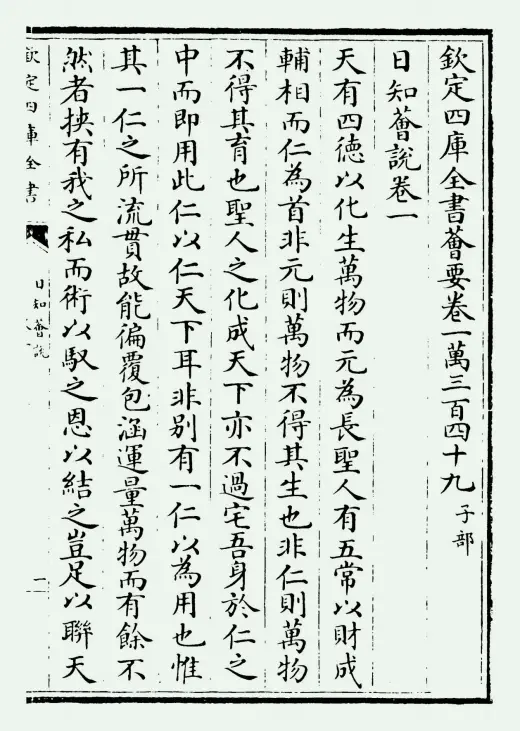 欽定四庫全書薈要卷一萬三百四十九 子部
日知薈說卷一
天有四德以化生萬物而元為長聖人有五常以財成
輔相而仁為首非元則萬物不得其生也非仁則萬物
不得其育也聖人之化成天下亦不過宅吾身於仁之
中而即用此仁以仁天下耳非別有一仁以為用也惟
其一仁之所流貫故能徧覆包涵運量萬物而有餘不
然者挾有我之私而術以馭之恩以結之豈足以聯天
欽定四庫全書
日知薈說
一